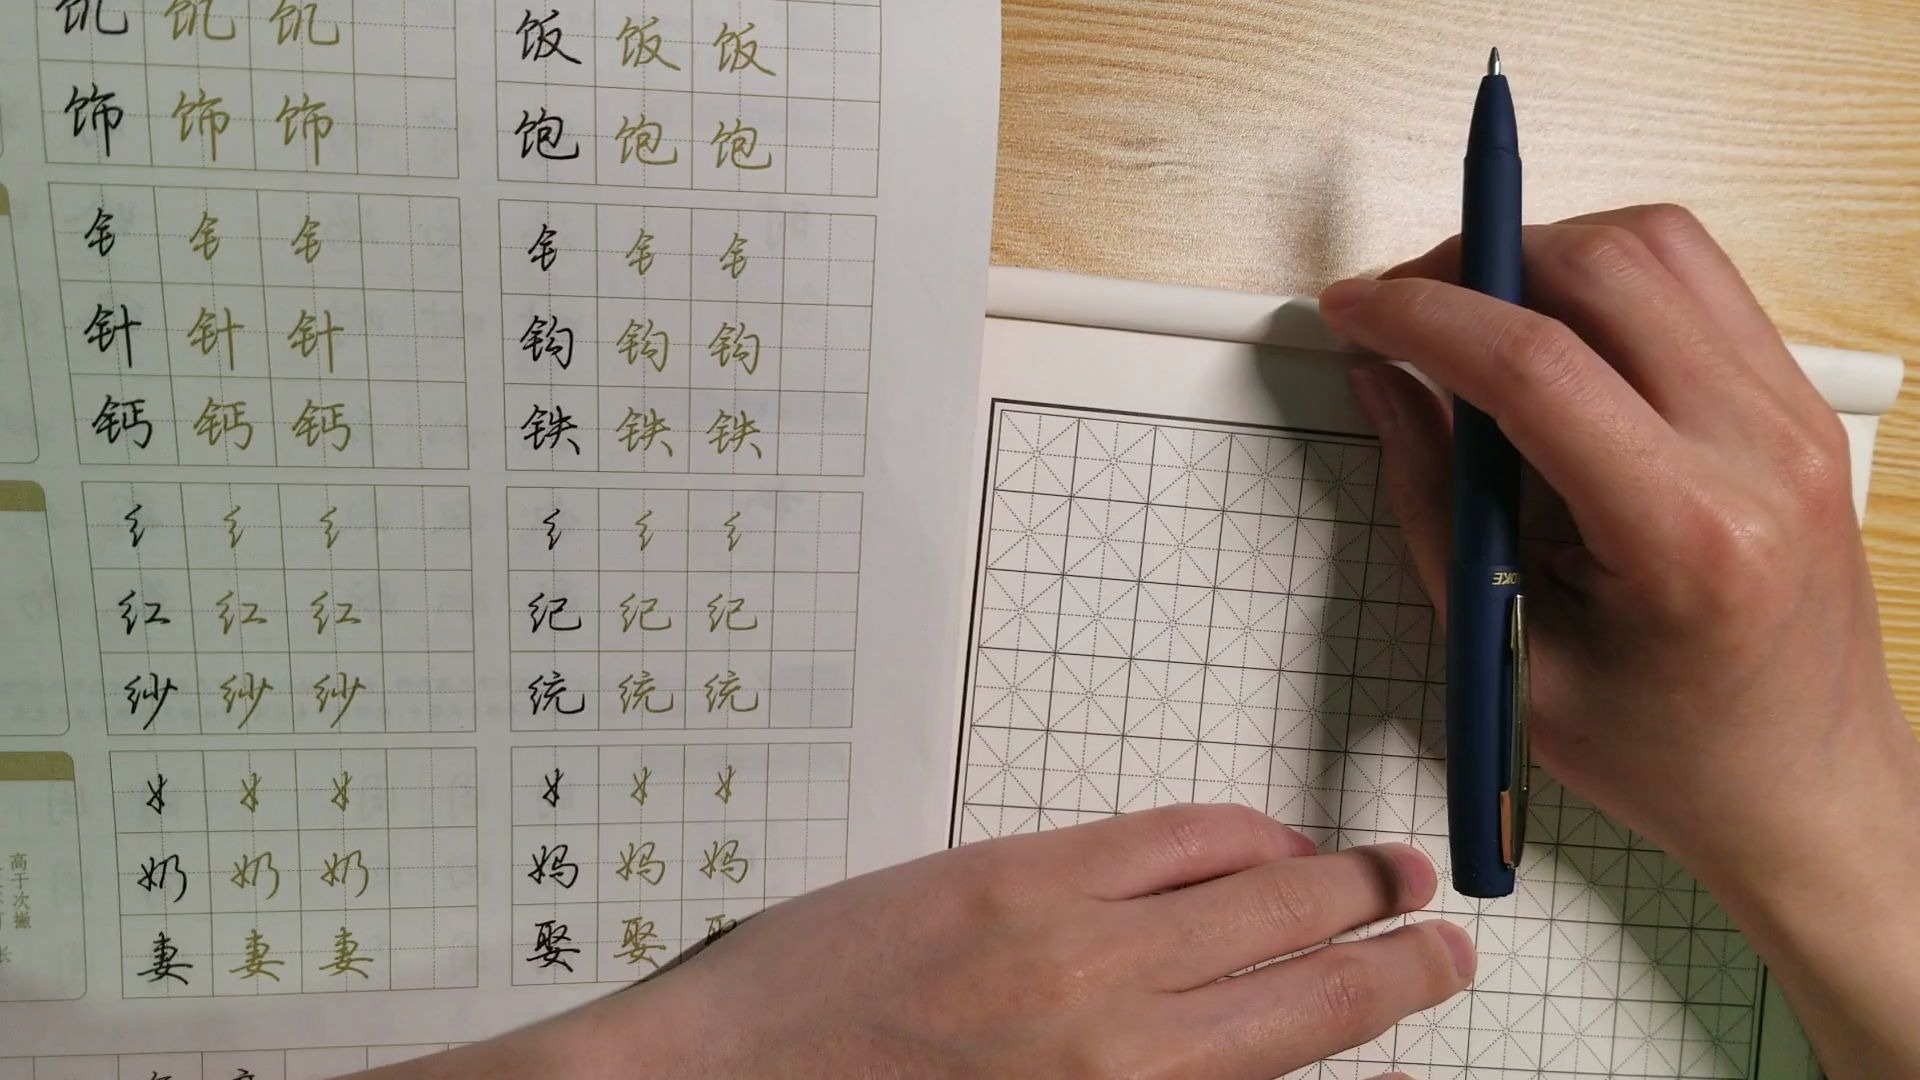 饥 饥 饥
饰 饰 饰
饭 饭 饭
饱 饱 饱
钅 钅 钅
针 针 针
钙 钙 钙
钅 钅 钅
钩 钩 钩
铁 铁 铁
纟 纟 纟
红 红 红
纱 纱 纱
纟 纟 纟
纪 纪 纪
统 统 统
女 女 女
奶 奶 奶
妻 妻 妻
女 女 女
妈 妈 妈
娶 娶 娶
高于次撇
长
OKE